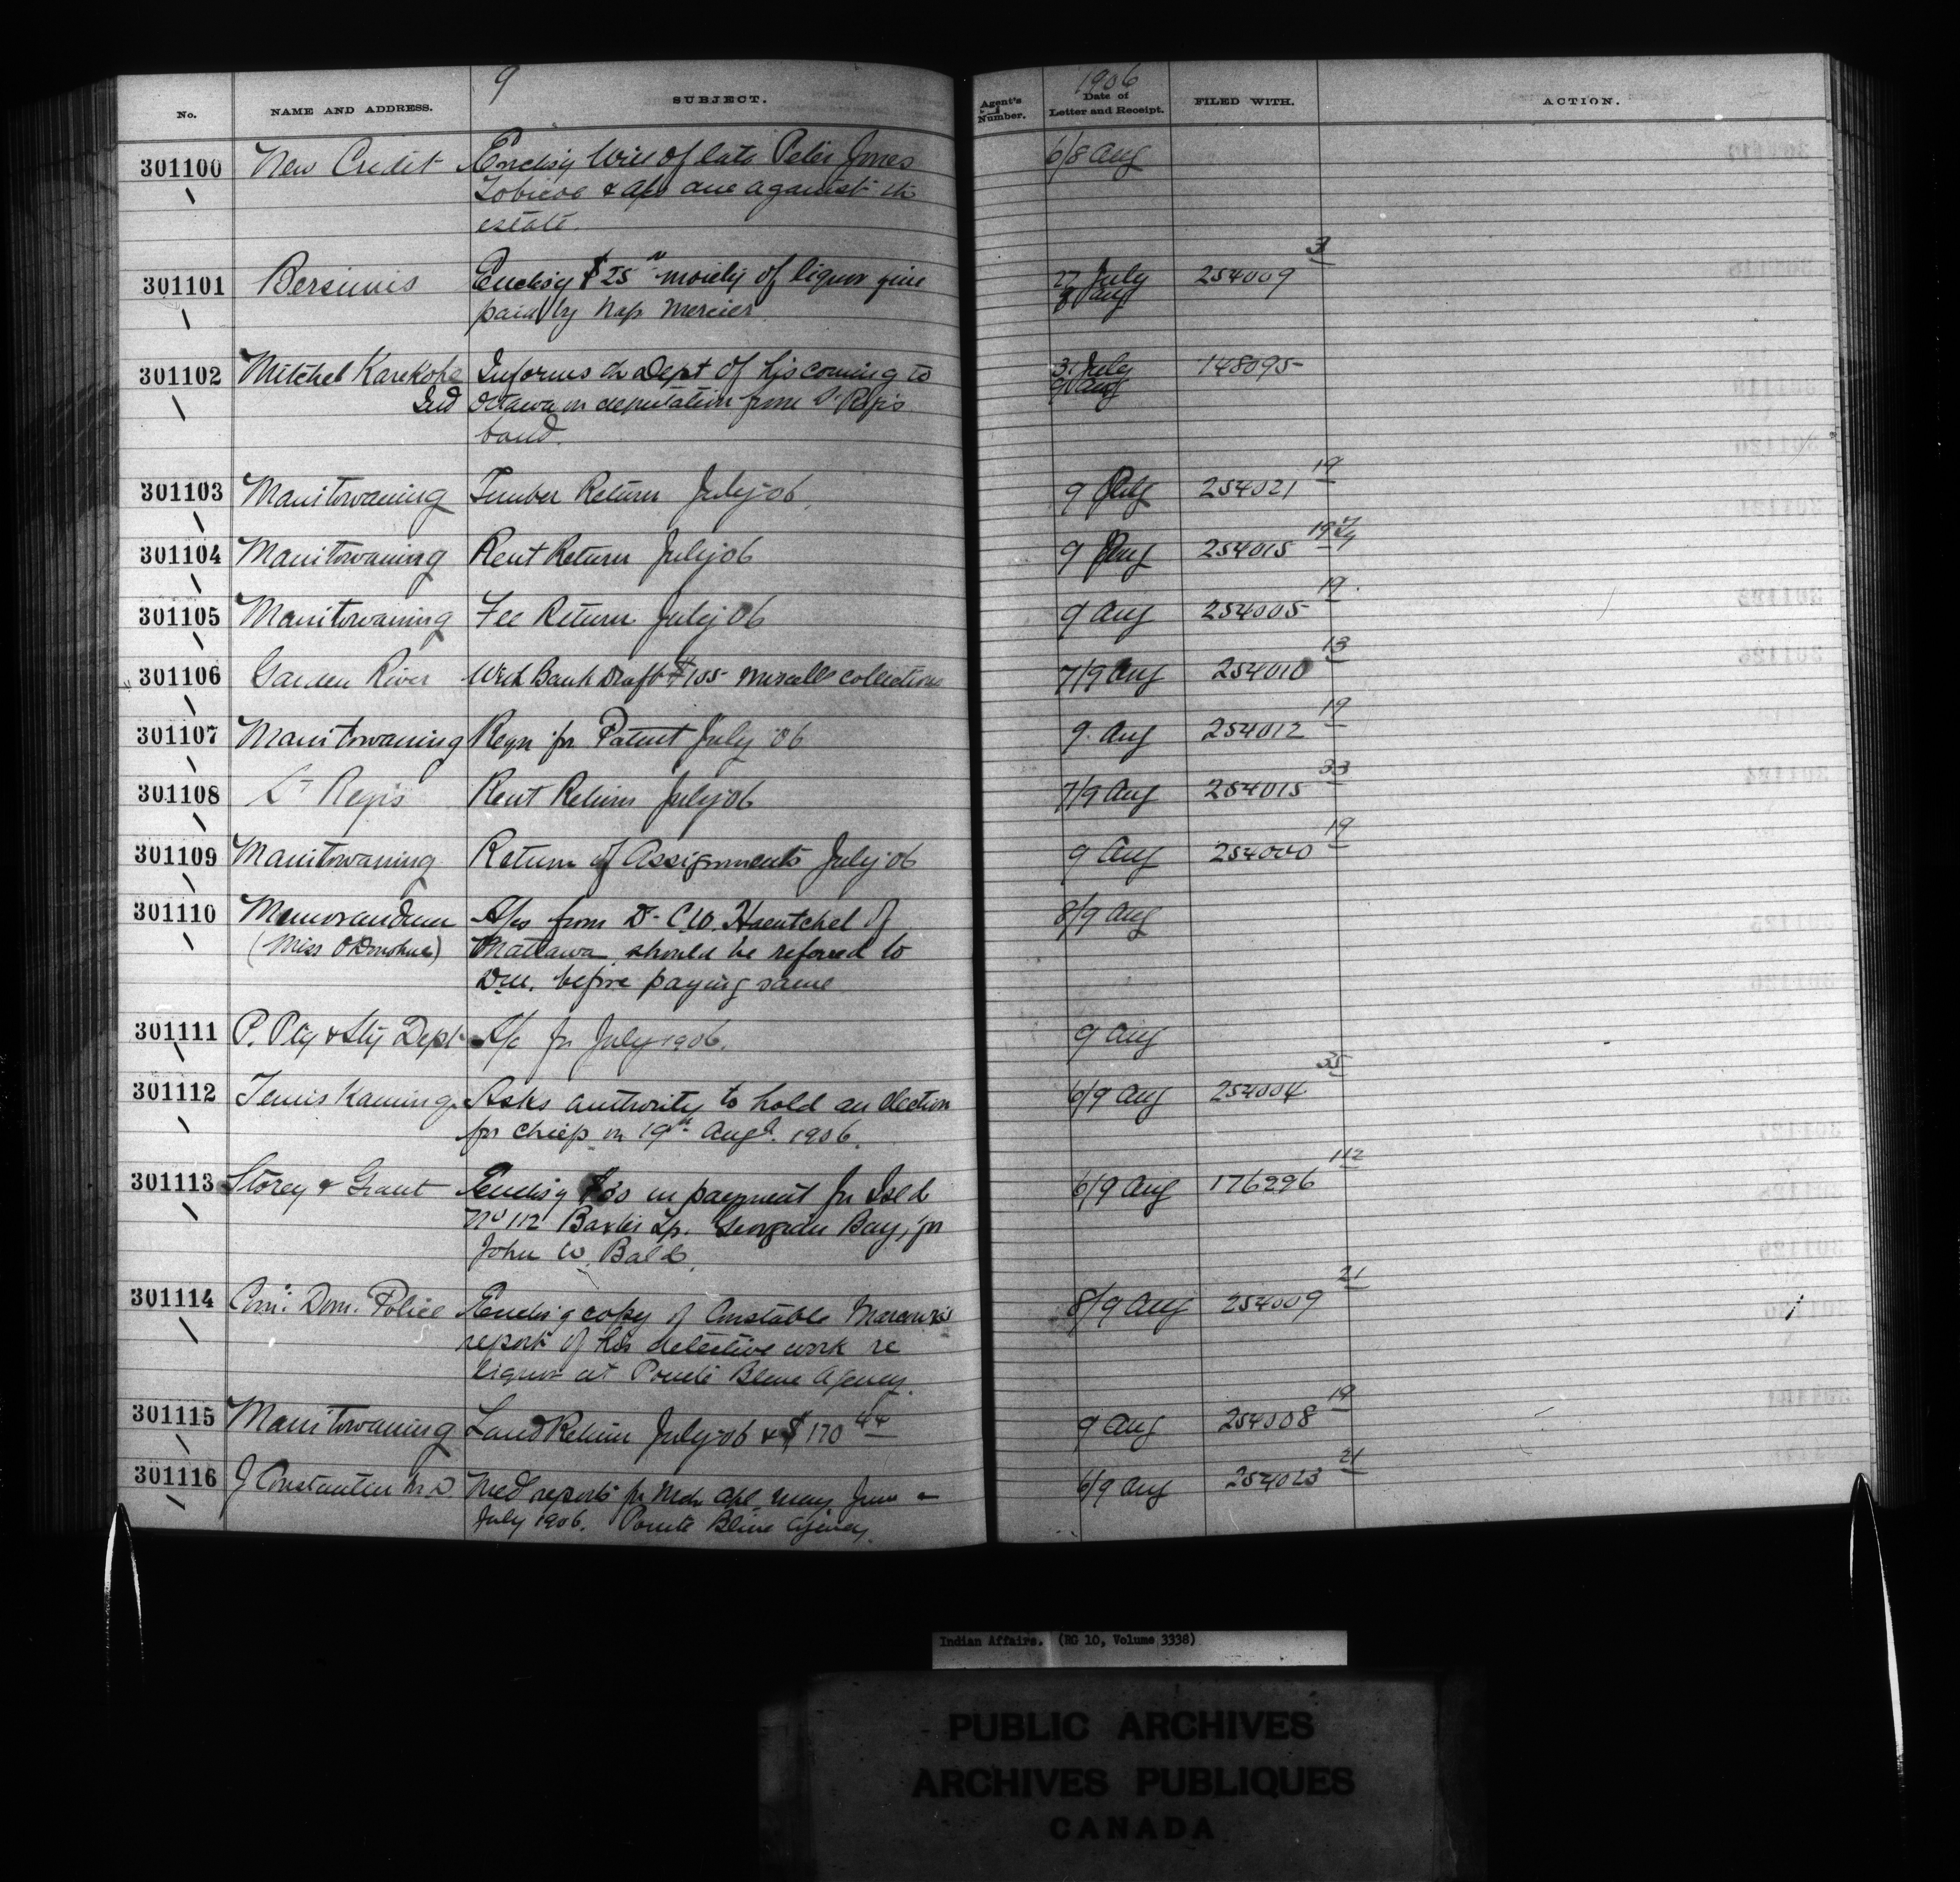 9 1906
No. NAME AND ADDRESS. SUBJECT. Agent's Number. Date of Letter and Receipt. FILED WITH. ACTION.
301100 New Credit Enclsig Will of late Peter Jones 6/8 Aug
Tobicoe & a/cs due against the
estate.
301101 Bersimis Enclsig $25 moiety of liquor fine 27 July 254009 3
paid by Nap Mercier 8 Aug
301102 Mitchel Karekohe Informs the Dept of his coming to 31 July 148095
Ind Ottawa on deputation from St Regis 9 Aug
band.
301103 Manitowaning Timber Return July 06 9 Aug 254021 19
301104 Manitowaning Rent Return July 06 9 Aug 254015 19
301105 Manitowaning Fee Return July 06 9 Aug 254005 19
301106 Garden River With Bank Draft $105 Miscells collections 7/9 Aug 254010 13
301107 Manitowaning Reqn for Patent July 06 9 Aug 254012 19
301108 St Regis Rent Return July 06 7/9 Aug 254015 33
301109 Manitowaning Return of Assignments July 06 9 Aug 254000 19
301110 Memorandum A/cs from Dr C.W. Haentchel of 8/9 Aug
(Miss O'Donohue) Mattawa should be refered to
D.M. before paying same
301111 P. Ptg & Sty Dept A/c for July 1906. 9 Aug
301112 Temis Kaming Asks authority to hold an election 6/9 Aug 254004 35
for chief on 19th Augt. 1906.
301113 Storey & Grant Enclsig in payment for Isld 6/9 Aug 176296 112
No 112 Baxter Tp. Georgian Bay, for
John W. Bald.
301114 Com: Dom. Police Enclsig copy of Constable 8/9 Aug 254009 21
report of his detective work re
liquor at Pointe Bleue Agency.
301115 Manitowaning Land Return July 06 & $170 44 9 Aug 254008 19
301116 J Constantin M.D. Med reports for Mch Apl May June & 6/9 Aug 254023 21
July 1906. Pointe Bleue Agency.
Indian Affairs. (RG 10, Volume 3338)
PUBLIC ARCHIVES
ARCHIVES PUBLIQUES
CANADA